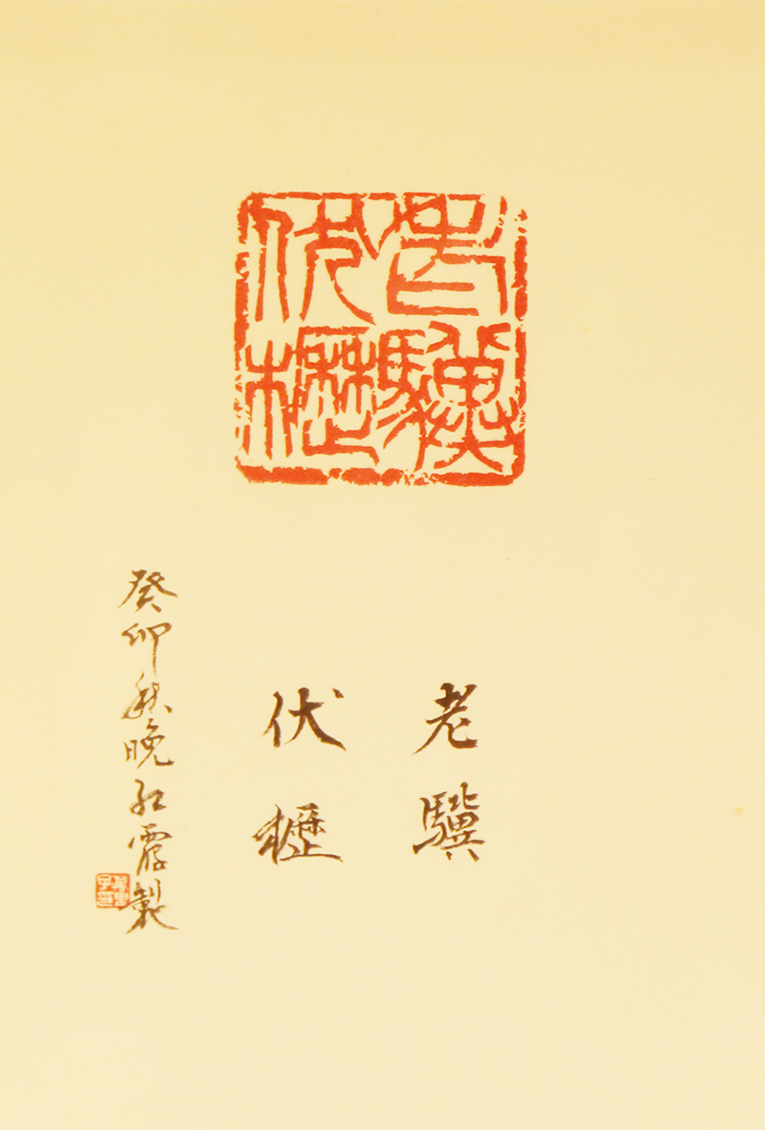 老驥
伏櫪
老驥
伏櫪
癸卯秋晚红霞製